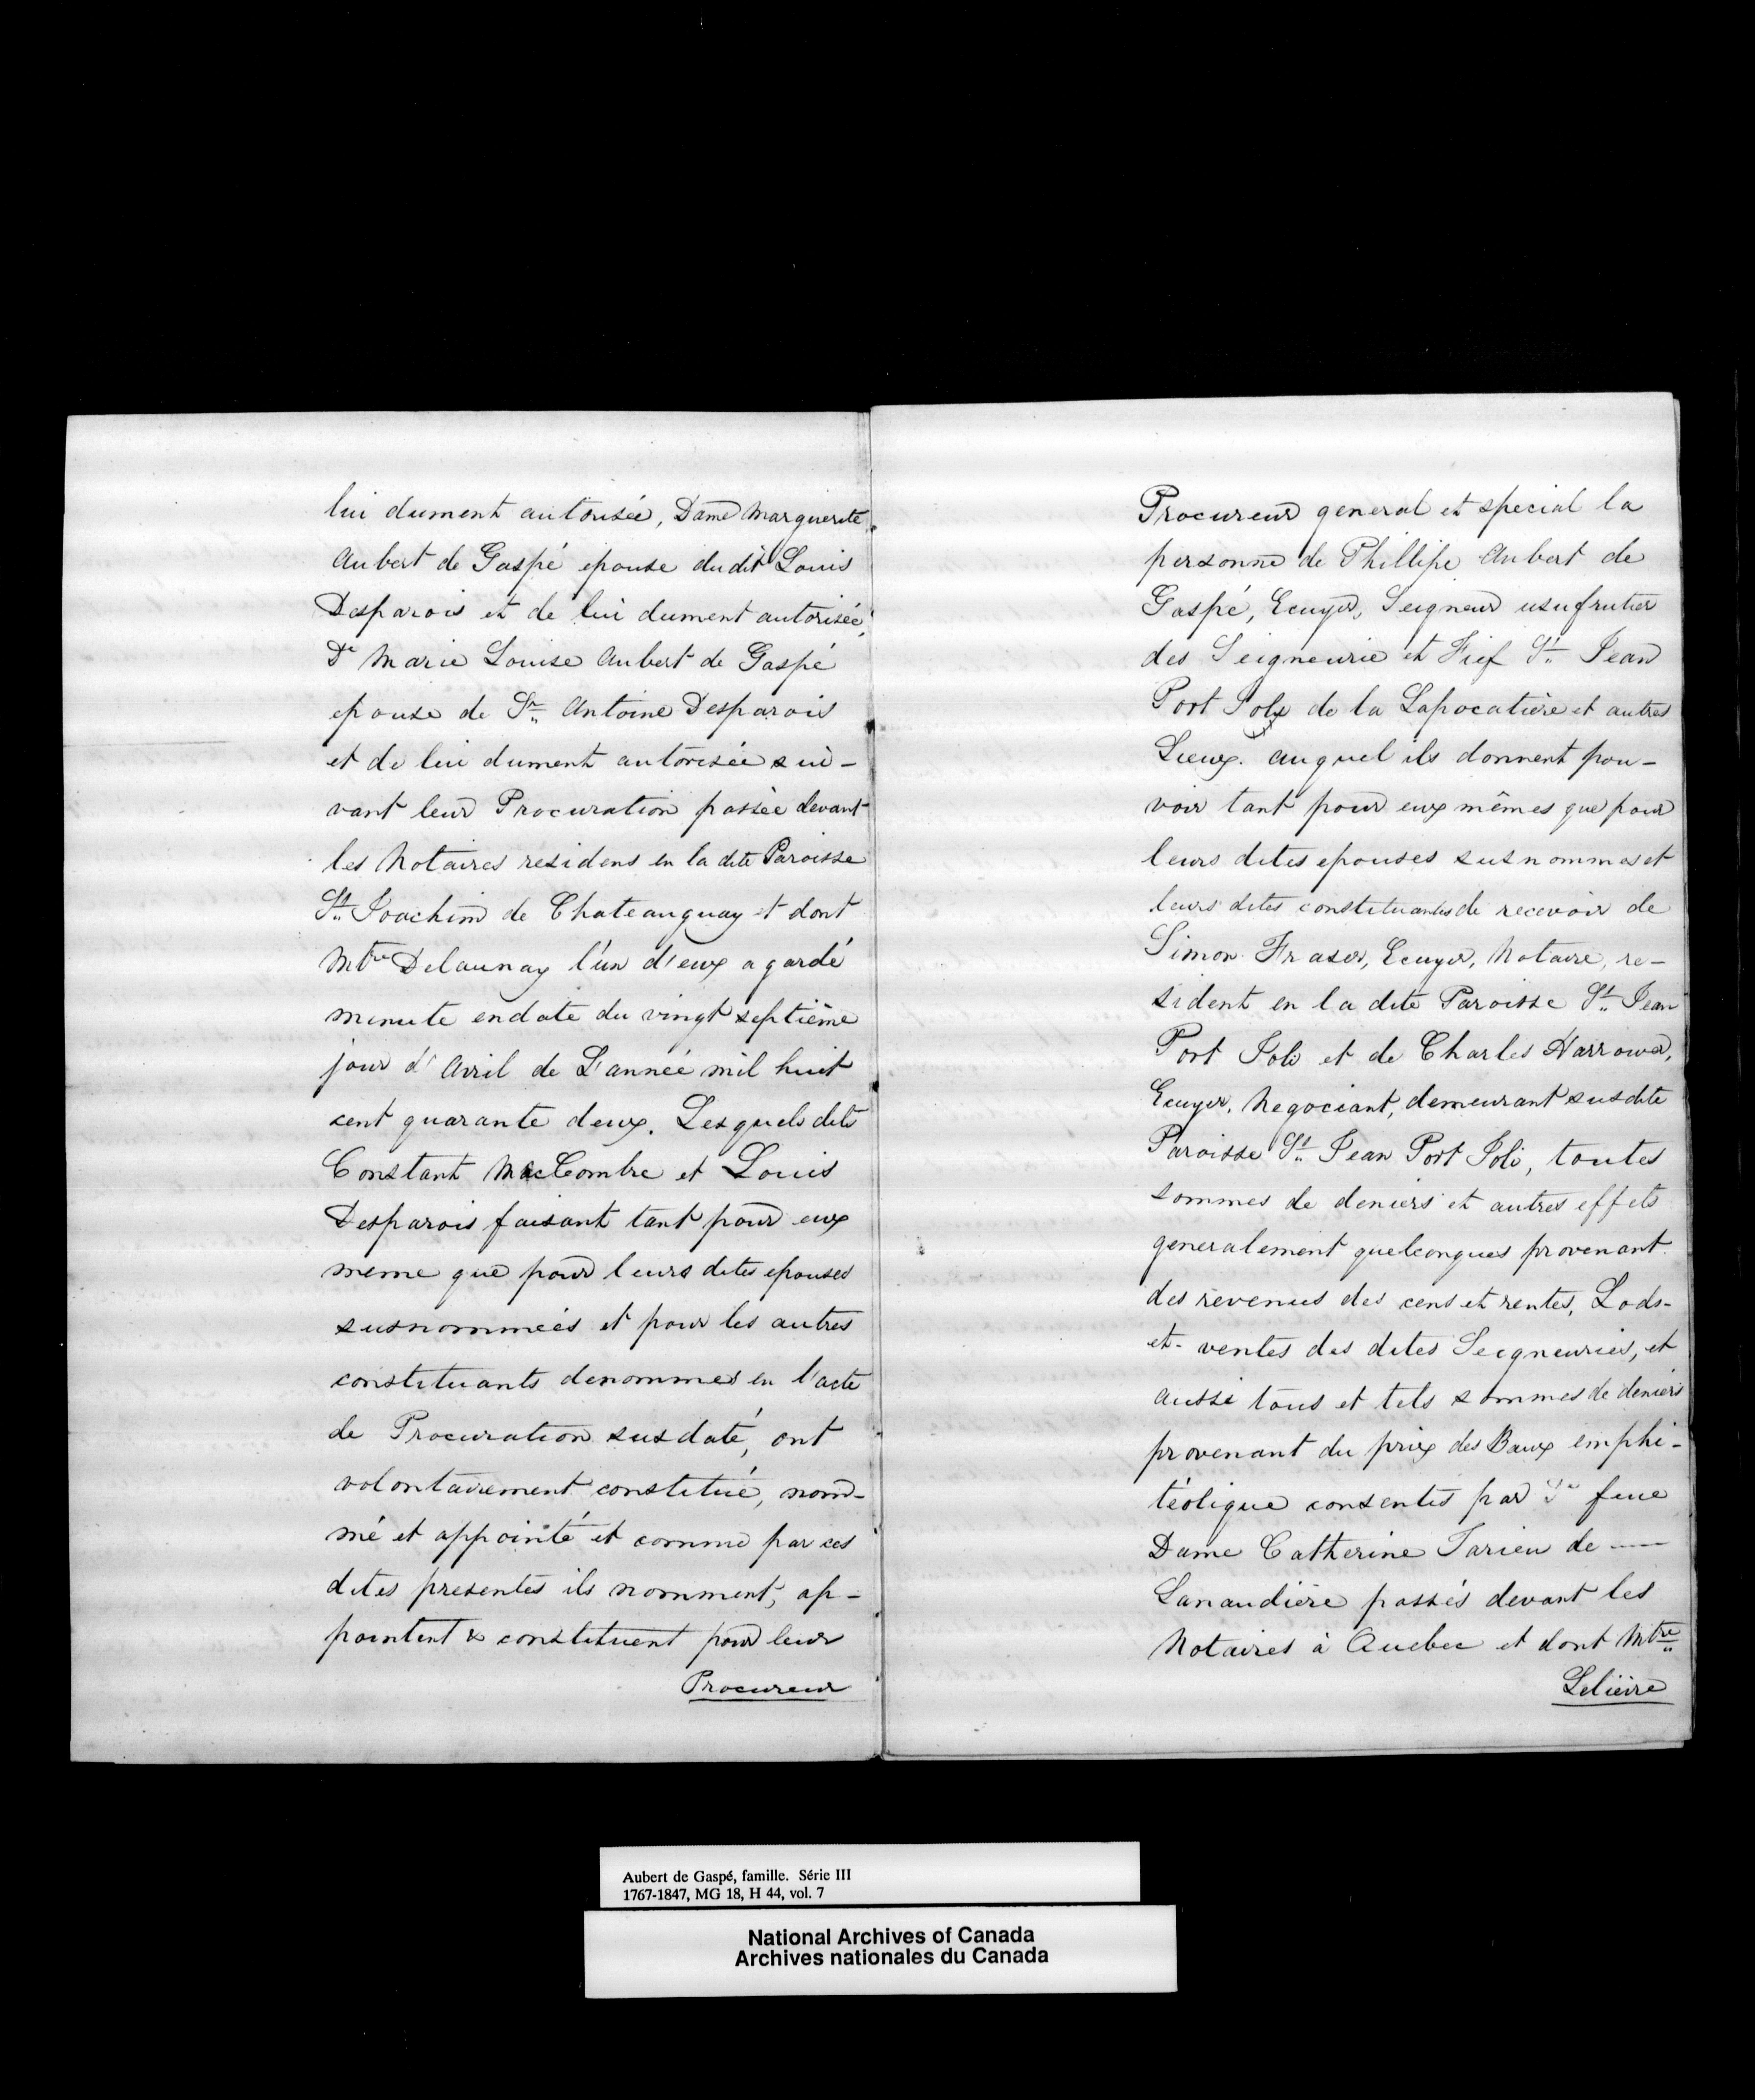 lui dument autorisée, Dame Marguerite
Aubert de Gaspé epouse dudit Louis
Desparois et de lui dument autorisée,
De Marie Louise Aubert de Gaspé
epouse de Sr. Antoine Desparois
et de lui dument autorisée sui-
vant leur Procuration passée devant
les Notaires residens en la dite Paroisse
St. Joachim de Chateauguay et dont
Mtre Delaunay l'un d'eux a gardé
minute en date du vingt septième
jour d'Avril de L'année mil huit
cent quarante deux. Lesquels dits
Constant MacCombre et Louis
Desparois faisant tant pour eux
meme que pour leurs dites epouses
susnommées et pour les autres
constituants denommes en l'acte
de Procuration susdaté, ont
volontairement constitué, nom-
mé et appointé et comme par ces
dites presentes ils nomment, ap-
pointent & constituent pour leur
Procureur
Procureur general et special la
personne de Phillipe Aubert de
Gaspé, Ecuyer, Seigneur usufrutier
des Seigneurie et Fief St. Jean
Port Joly de la Lapocatière et autres
Lieux. auquel ils donnent pou-
voir tant pour eux mêmes que pour
leurs dites epouses susnommes et
leurs dites constituantes de recevoir de
Simon Fraser, Ecuyer, Notaire, re-
sident en la dite Paroisse St. Jean
Port Joli et de Charles Harrower,
Ecuyer, Negociant, demeurant susdite
Paroisse St. Jean Port Joli, toutes
sommes de deniers et autres effets
generalement quelconques provenant
des revenus des cens et rentes, Lods-
et-ventes des dites Seigneuries, et
aussi tous et tels sommes de deniers
provenant du prix des Baux emphi-
téotique consentis par feue
Dame Catherine Tarieu de ——
Lanaudière passés devant les
Notaires à Quebec et dont Mtre
Lelièvre
Aubert de Gaspé, famille. Série III
1767-1847, MG 18, H 44, vol. 7
National Archives of Canada
Archives nationales du Canada